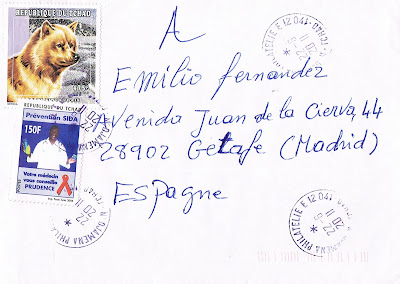 REPUBLIQUE DU TCHAD
A
Emilio fernandez
REPUBLIQUE DU TCHAD
Prévention SIDA
150F
Avenida Juan de la Cierva, 44
28902 Getafe (Madrid)
Votre médecin
vous conseille
PRUDENCE
ESPagne
PHILATELIE E 12 041